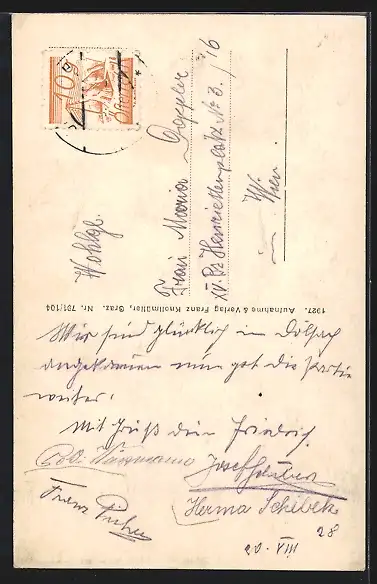 10
Wohlg.
Frau Maria Doppler
XV. Bz Henriettenplatz No 3. / 16
Wien
1927. Aufnahme & Verlag Franz Knollmüller, Graz. Nr. 781/104
Wir sind glücklich in Dölsach
angekommen nun get die Partie
weiter.
Mit Gruß dein Friedrich
Josef
Franz
Herma Schebek
20. VIII 28